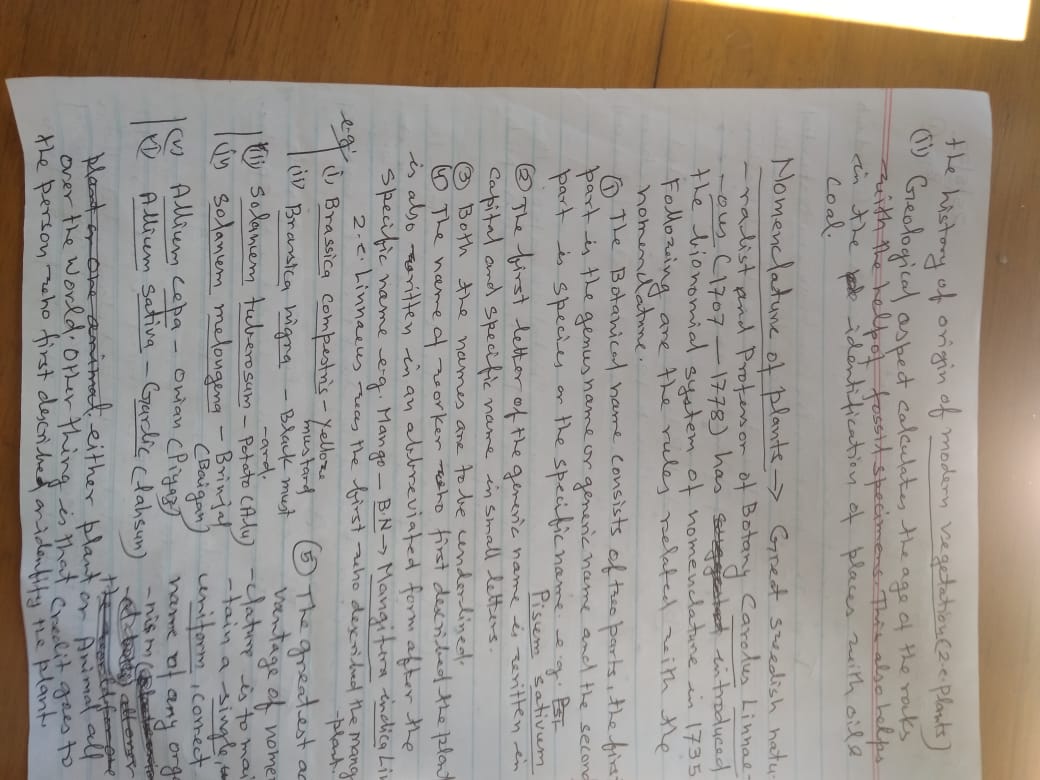 the history of origin of modern vegetation (2.e. plants)
(ii) Geological aspect calculates the age of the rocks
with the help of fossil specimens. This also helps
in the identification of places with oil &
coal.
Nomenclature of plants → Great swedish natu-
-ralist and Professor of Botany Carolus Linnae-
-ous (1707-1778) has introduced
the bionomial system of nomenclature in 1735
Following are the rules related with the
nomenclature.
① The Botanical name consists of two parts, the first
part is the genus name or generic name and the second
part is species or the specific name e.g.
Pissem sativum
② The first letter of the generic name is written in
capital and specific name in small letters.
③ Both the names are to be underlined.
④ The name of worker who first described the plant
is also written in an abbreviated form after the
specific name e.g. Mango - B.N → Mangifera indica Li
2.e. Linnaeus was the first who described the mang
-plant.
e.g. (i) Brassica compestris - Yellow
mustard
(ii) Brassica nigra - Black must
-ard.
(iii) Solanem tuberosum - Potato (Aly)
(iv) Solanem melongena - Brinjal
(Baigan)
(v) Allium cepa - onion (Piyaz)
(vi) Allium sativa - Garlic (lahsun)
⑤ The greatest ad
vantage of nomen
-clature is to mai
-tain a single,
uniform, correct
name of any orga
-nism
plant or one animal. either plant or Animal all
over the world. Other thing is that Credit goes to
the person who first described and identify the plant.